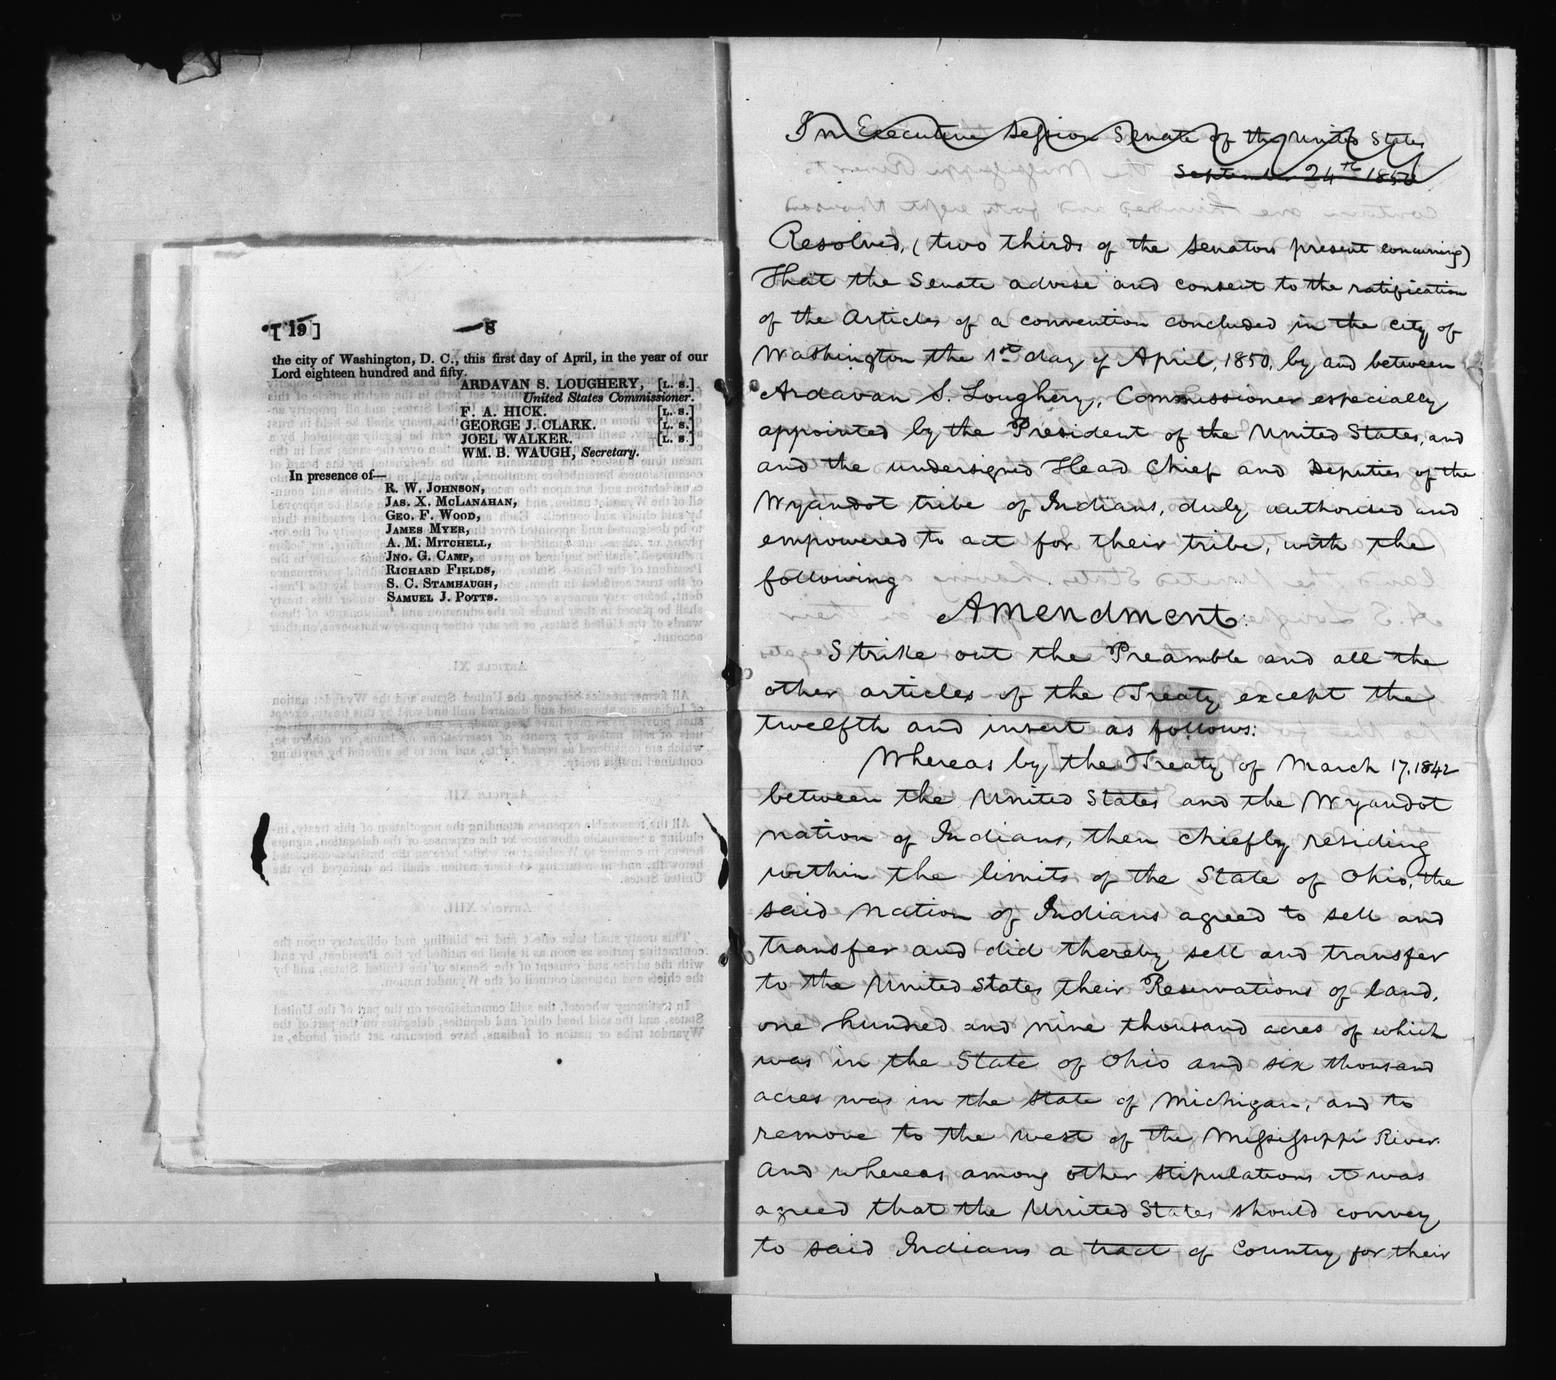 [ 19 ]
8
the city of Washington, D. C., this first day of April, in the year of our
Lord eighteen hundred and fifty.
ARDAVAN S. LOUGHERY, [L. S.]
United States Commissioner.
F. A. HICK. [L. S.]
GEORGE J. CLARK. [L. S.]
JOEL WALKER. [L. S.]
WM. B. WAUGH, Secretary.
In presence of—
R. W. JOHNSON,
JAS. X. MCLANAHAN,
GEO. F. WOOD,
JAMES MYER,
A. M. MITCHELL,
JNO. G. CAMP,
RICHARD FIELDS,
S. C. STAMBAUGH,
SAMUEL J. POTTS.
In Executive Session Senate of the United States
September 24th 1850
Resolved, (two thirds of the Senators present concurring)
That the Senate advise and consent to the ratification
of the Articles of a convention concluded in the city of
Washington the 1st day of April, 1850, by and between
Ardavan S. Loughery, Commissioner especially
appointed by the President of the United States, and
and the undersigned Head Chief and Deputies of the
Wyandot tribe of Indians, duly authorised and
empowered to act for their tribe, with the
following
Amendment:
Strike out the Preamble and all the
other articles of the Treaty except the
twelfth and insert as follows:
Whereas by the Treaty of March 17, 1842
between the United States and the Wyandot
nation of Indians, then chiefly residing
within the limits of the State of Ohio, the
said nation of Indians agreed to sell and
transfer and did thereby sell and transfer
to the United States their Reservations of land,
one hundred and nine thousand acres of which
was in the State of Ohio and six thousand
acres was in the State of Michigan, and to
remove to the west of the Mississippi River.
And whereas among other stipulations it was
agreed that the United States should convey
to said Indians a tract of Country for their